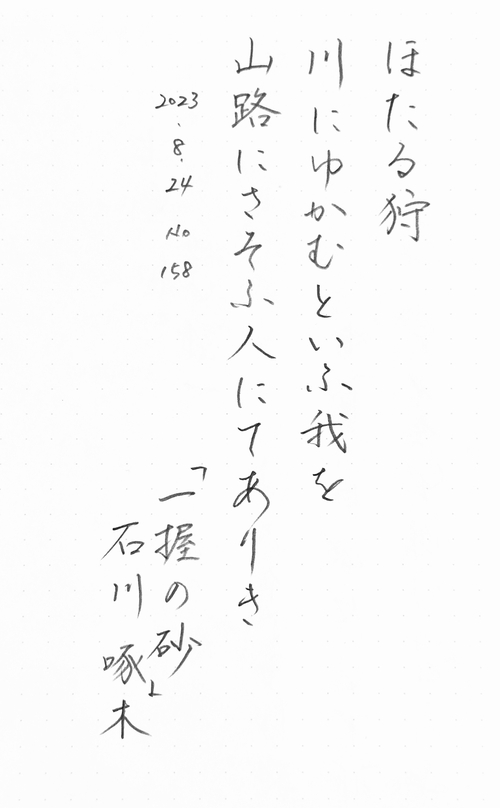 ほたる狩
川にゆかむといふ我を
山路にさそふ人にてありき
2023.8.24 No158
「一握の砂」
石川啄木